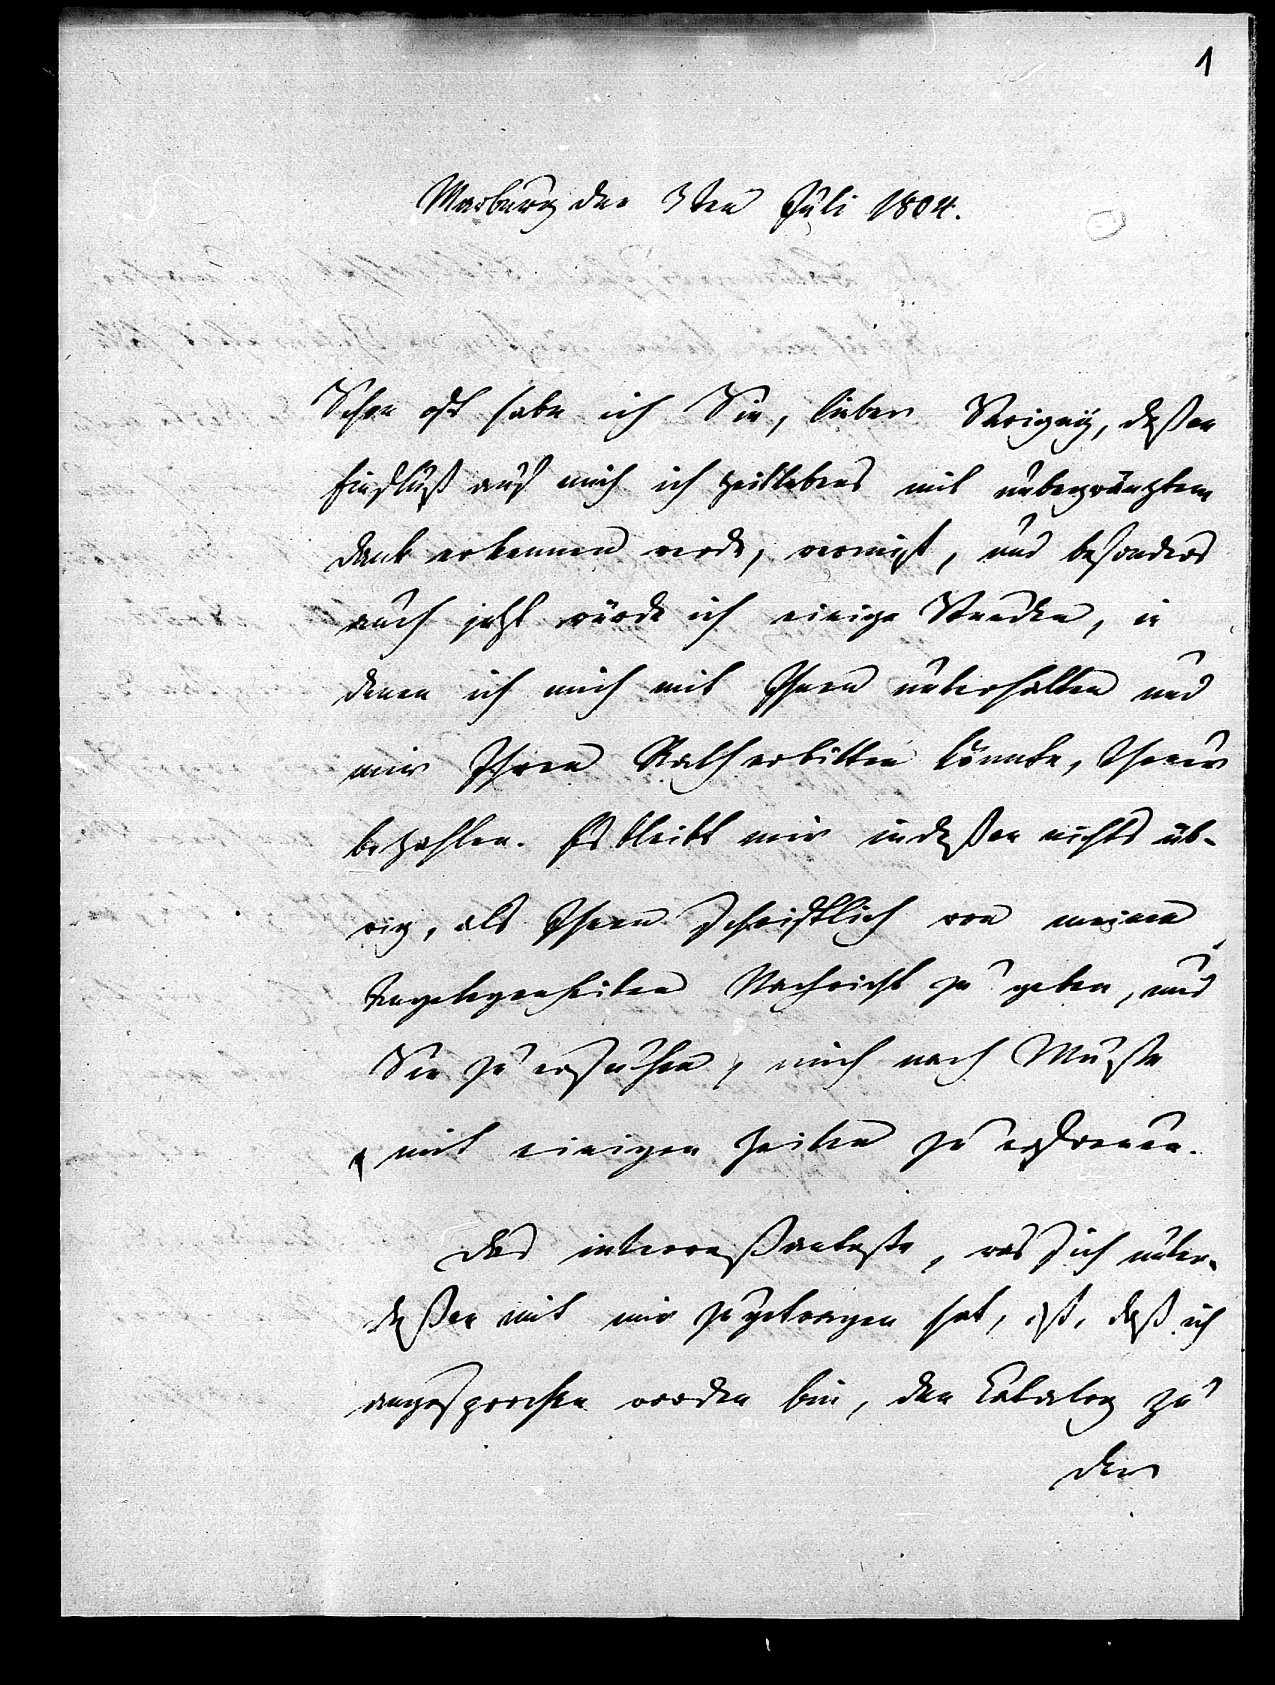 1
Marburg den 3ten Juli 1804.
Schon oft habe ich Sie, lieber Savigny, deßen
Einfluß auf mich ich zeitlebens mit unbegränztem
Dank erkennen werde, vermißt, und besonders
auch jetzt würde ich einige Stunden, in
denen ich mich mit Ihnen unterhalten und
mir Ihren Rath erbitten könnte, theuer
bezahlen. Es bleibt mir indeßen nichts üb-
rig, als Ihnen schriftlich von meinen
Angelegenheiten Nachricht zu geben, und
Sie zu ersuchen, mich nach Muße
mit einigen Zeilen zu erfreuen.
Das interreßanteste, was sich unter-
deßen mit mir zugetragen hat, ist, daß ich
angesprochen worden bin, den Catalog zu
der